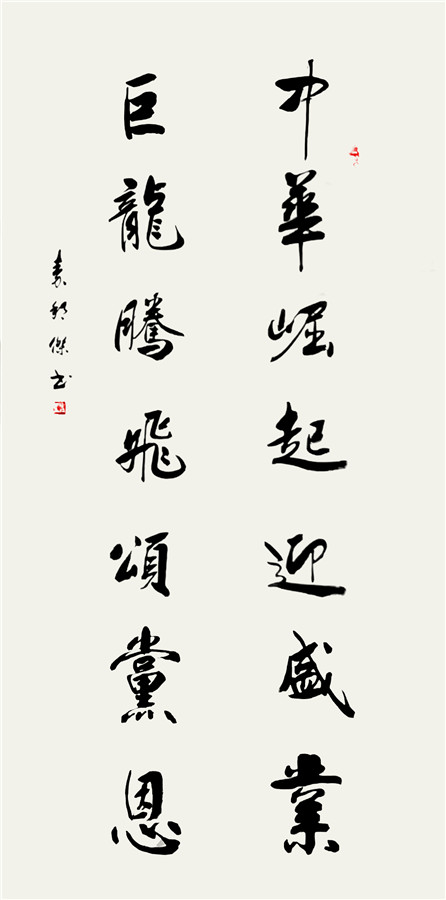 中華崛起迎盛業
巨龍騰飛頌黨恩
袁邦傑书